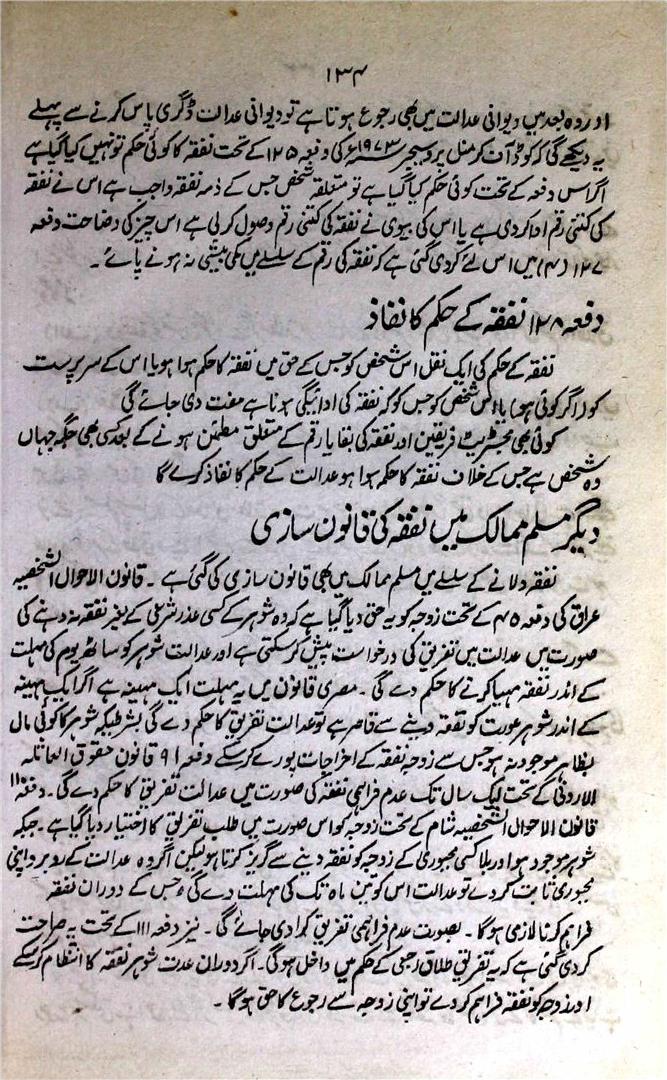 ۱۳۴
اور وہ بعد میں دیوانی عدالت میں بھی رجوع ہوتا ہے تو دیوانی عدالت ڈگری پاس کرنے سے پہلے
یہ دیکھے گی کہ کوڈ آف کرمنل پروسیجر ۱۹۷۳ء کی دفعہ ۱۲۵ کے تحت نفقہ کا کوئی حکم تو نہیں کیا گیا ہے
اگر اس دفعہ کے تحت کوئی حکم کیا گیا ہے تو متعلقہ شخص جس کے ذمہ نفقہ واجب ہے اس نے نفقہ
کی کتنی رقم ادا کر دی ہے یا اس کی بیوی نے نفقہ کی کتنی رقم وصول کر لی ہے اس چیز کی وضاحت دفعہ
۱۲۷ (۴) میں اس لئے کر دی گئی ہے کہ نفقہ کی رقم کے سلسلے میں کمی بیشی نہ ہونے پائے۔
دفعہ ۱۲۸ نفقہ کے حکم کا نفاذ
نفقہ کے حکم کی ایک نقل اس شخص کو جس کے حق میں نفقہ کا حکم ہوا ہو یا اس کے سرپرست
کو (اگر کوئی ہو) یا اس شخص کو جس کو کہ نفقہ کی ادائیگی ہونا ہے مفت دی جائے گی
کوئی بھی مجسٹریٹ فریقین اور نفقہ کی بقایا رقم کے متعلق مطمئن ہونے کے بعد کسی بھی جگہ جہاں
وہ شخص ہے جس کے خلاف نفقہ کا حکم ہوا ہو عدالت کے حکم کا نفاذ کرے گا
دیگر مسلم ممالک میں نفقہ کی قانون سازی
نفقہ دلانے کے سلسلے میں مسلم ممالک میں بھی قانون سازی کی گئی ہے۔ قانون الاحوال الشخصیہ
عراق کی دفعہ ۴۵ کے تحت زوجہ کو یہ حق دیا گیا ہے کہ وہ شوہر کے کسی عذر شرعی کے بغیر نفقہ نہ دینے کی
صورت میں عدالت میں تفریق کی درخواست پیش کر سکتی ہے اور عدالت شوہر کو ساٹھ یوم کی مہلت
کے اندر نفقہ مہیا کرنے کا حکم دے گی۔ مصری قانون میں یہ مہلت ایک مہینہ ہے اگر ایک مہینہ
کے اندر شوہر عورت کو نفقہ دینے سے قاصر ہے تو عدالت تفریق کا حکم دے گی بشرطیکہ شوہر کا کوئی مال
بظاہر موجود نہ ہو جس سے زوجہ نفقہ کے اخراجات پورے کر سکے دفعہ ۹۱ قانون حقوق العائلہ
الاردنی کے تحت ایک سال تک عدم فراہمی نفقہ کی صورت میں عدالت تفریق کا حکم دے گی۔ دفعہ ۱۱۰
قانون الاحوال الشخصیہ شام کے تحت زوجہ کو اس صورت میں طلب تفریق کا اختیار دیا گیا ہے۔ جبکہ
شوہر موجود ہو اور بلا کسی مجبوری کے زوجہ کو نفقہ دینے سے گریز کرتا ہو لیکن اگر وہ عدالت کے روبرو اپنی
مجبوری ثابت کر دے تو عدالت اس کو تین ماہ تک کی مہلت دے گی جس کے دوران نفقہ
فراہم کرنا لازمی ہوگا۔ بصورت عدم فراہمی تفریق کرا دی جائے گی۔ نیز دفعہ ۱۱۱ کے تحت یہ صراحت
کر دی گئی ہے کہ یہ تفریق طلاق رجعی کے حکم میں داخل ہوگی۔ اگر دوران عدت شوہر نفقہ کا انتظام کر سکے
اور زوجہ کو نفقہ فراہم کر دے تو اپنی زوجہ سے رجوع کا حق ہوگا۔